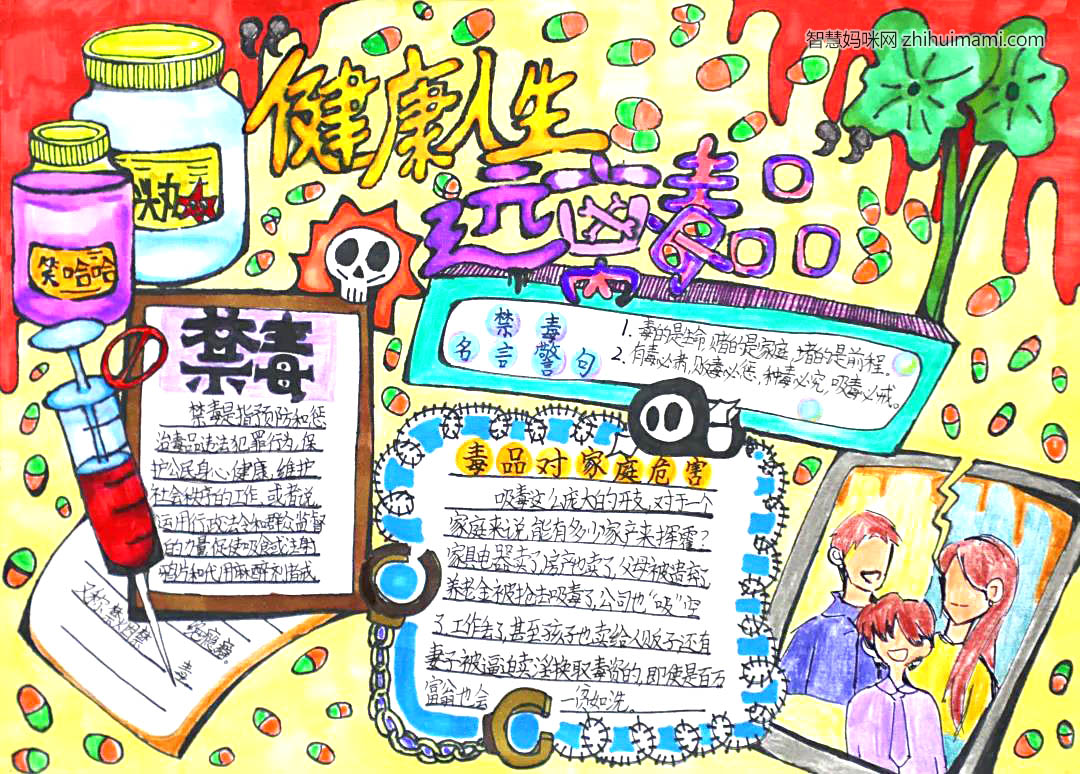 智慧妈咪网 zhihuimami.com
健康人生
远离毒品
头丸
笑哈哈
禁毒
禁毒是指预防和惩
治毒品违法犯罪行为,保
护公民身心健康,维护
社会秩序的工作,或者说
运用行政法令和群众监督
的力量促使吸食或注射
鸦片和代用麻醉剂者戒
禁毒
名言警句
1. 毒的是生命 赌的是家庭 堵的是前程。
2. 有毒必肃,贩毒必惩,种毒必究,吸毒必戒。
毒品对家庭危害
吸毒这么庞大的开支,对于一个
家庭来说,能有多少家产来挥霍?
家具电器卖了,房产也卖了,父母被遗弃,
养老金被抢去吸毒了,公司也“吸”空
了,工作丢了,甚至孩子也卖给人贩子,还有
妻子被逼迫卖淫换取毒资的,即使是百万
富翁也会一贫如洗。